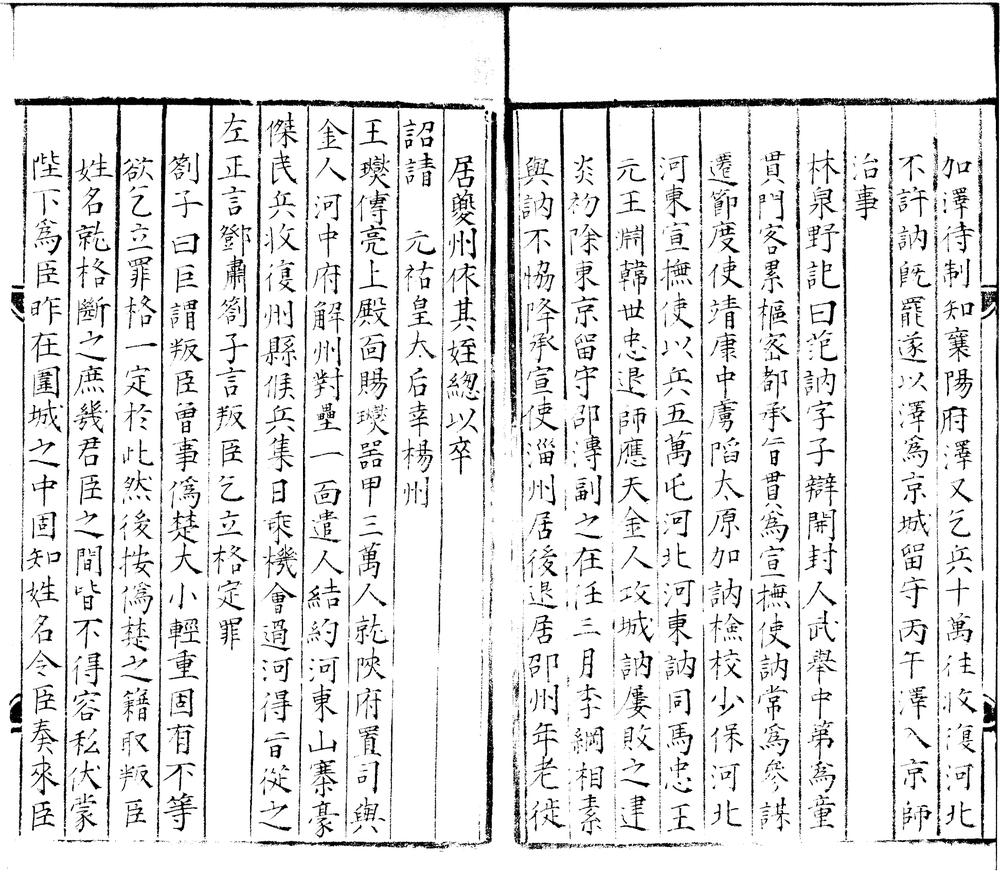 加澤待制知襄陽府澤又乞兵十萬往收復河北
不許訥既罷遂以澤爲京城留守丙午澤入京師
治事
林泉野記曰范訥字子辯開封人武舉中第爲童
貫門客累樞密都承旨貫爲宣撫使訥常爲參謀
遷節度使靖康中虜陷太原加訥檢校少保河北
河東宣撫使以兵五萬屯河北河東訥同馬忠王
元王淵韓世忠退師應天金人攻城訥屢敗之建
炎初除東京留守邵溥副之在任三月李綱相素
與訥不恊降承宣使淄州居後退居邵州年老徙
居夔州依其姪總以卒
詔請　元祐皇太后幸楊州
王𤫉傅亮上殿面賜𤫉器甲三萬人就陝府置司與
金人河中府解州對壘一面遣人結約河東山寨豪
傑民兵收復州縣候兵集日乘機會過河得旨從之
左正言鄧肅劄子言叛臣乞立格定罪
劄子曰臣謂叛臣曾事僞楚大小輕重固有不等
欲乞立罪格一定於此然後按僞楚之籍取叛臣
姓名就格斷之庶幾君臣之間皆不得容私伏蒙
陛下爲臣昨在圍城之中固知姓名令臣奏來臣